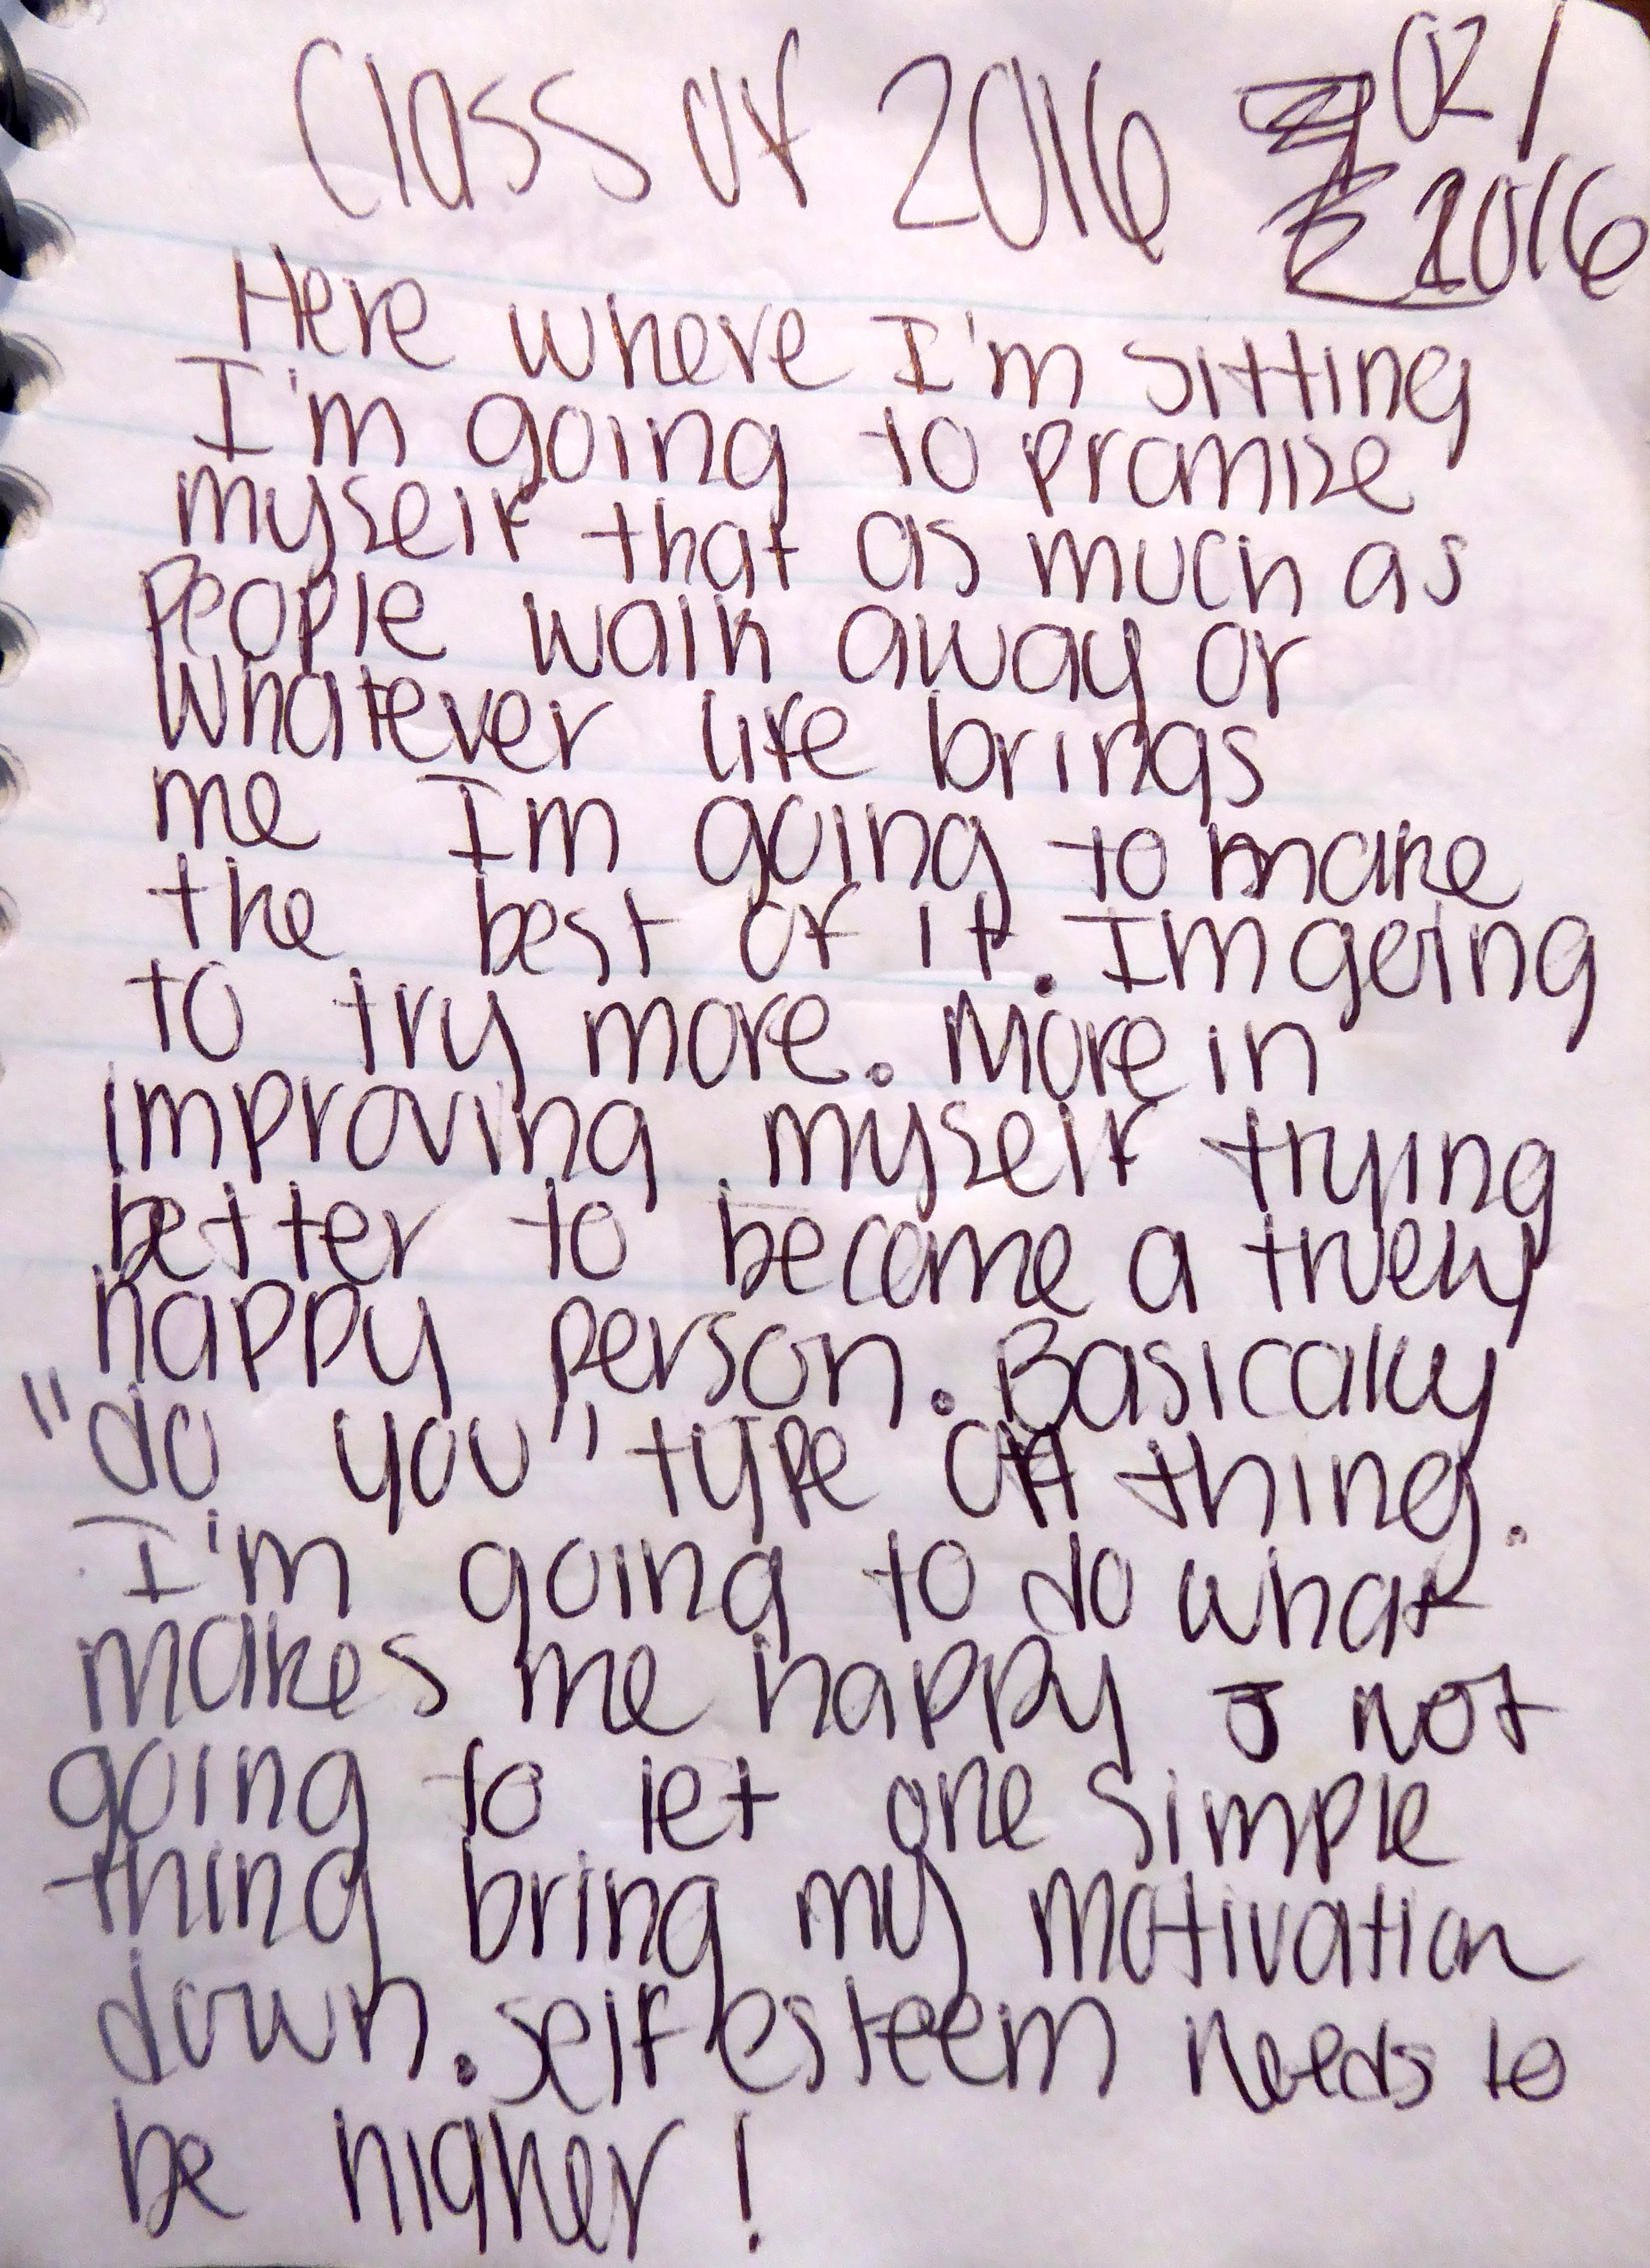 Class of 2016 02/
2016
Here where I'm sitting
I'm going to promise
myself that as much as
People walk away or
Whatever life brings
me Im going to make
the best of it. Im going
to try more. More in
improving myself trying
better to become a truely
happy person. Basicaly
"do you" type of thing.
I'm going to do what
makes me happy & not
going to let one simple
thing bring my motivation
down. self esteem needs to
be higher!